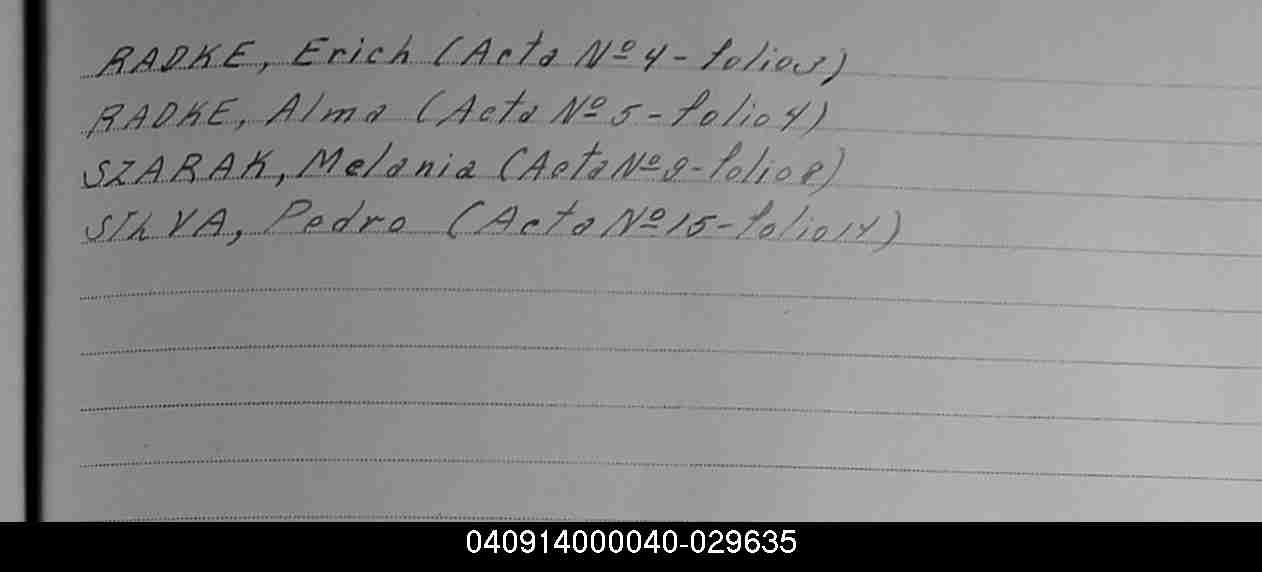 RADKE, Erich (Acta Nº 4 - folio 3)
RADKE, Alma (Acta Nº 5 - folio 4)
SZARAK, Melania (Acta Nº 9 - folio 8)
SILVA, Pedro (Acta Nº 15 - folio 14)
040914000040-029635